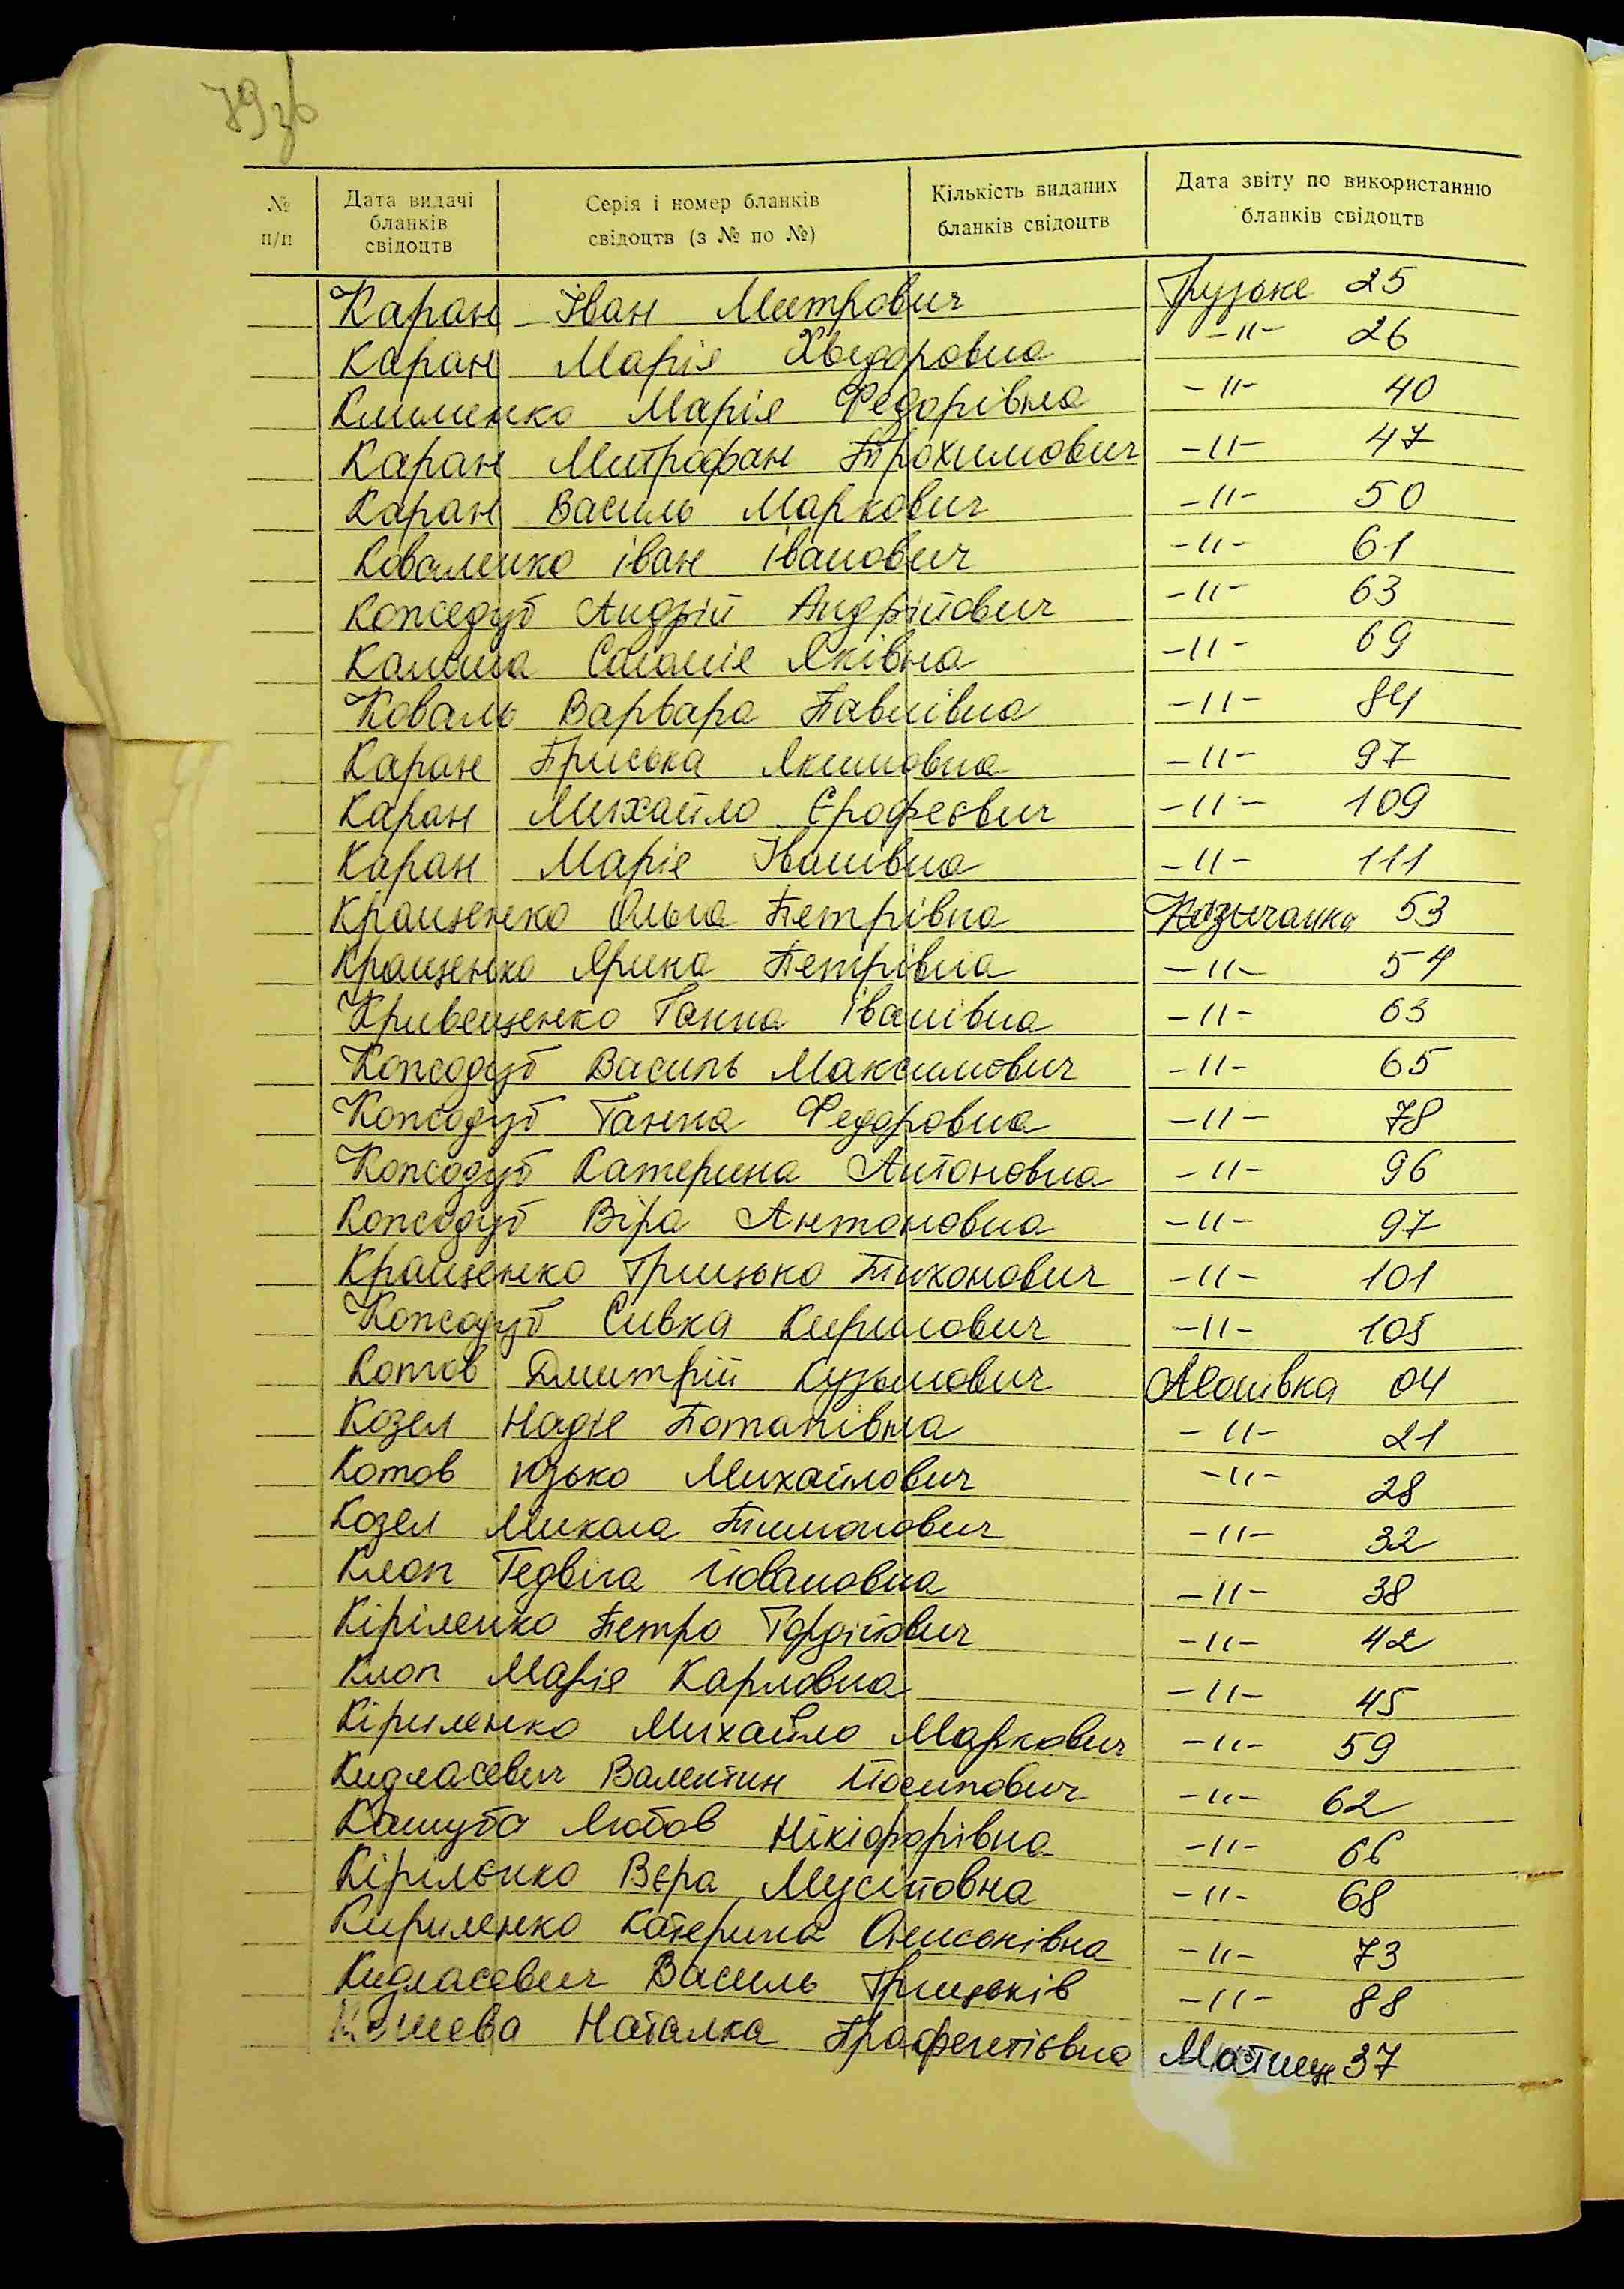 79 зв
№ п/п
Дата видачі бланків свідоцтв
Серія і номер бланків свідоцтв (з № по №)
Кількість виданих бланків свідоцтв
Дата звіту по використанню бланків свідоцтв
Каран Іван Митрович Грузьке 25
Каран Марія Хведоровна -"- 26
Клименко Марія Федорівна -"- 40
Каран Митрофан Трохимович -"- 47
Каран Василь Маркович -"- 50
Коваленко іван іванович -"- 61
Кожедуб Андрій Андрійович -"- 63
Яківна -"- 69
Коваль Варвара Павлівна -"- 84
Каран Приська Якимовна -"- 97
Каран Михайло Єрофеєвич -"- 109
Каран Марія Іванівна -"- 111
Кращенко Ольга Петрівна Козичанка 53
Кращенко Ярина Петрівна -"- 54
Кривещенко Ганна іванівна -"- 63
Кожодуб Василь Максимович -"- 65
Кожодуб Ганна Федоровна -"- 78
Кожодуб Катерина Антоновна -"- 96
Кожодуб Віра Антоновна -"- 97
Кращенко Грицько Тихонович -"- 101
Кожодуб Сивка Кирилович -"- 105
Котов Дмитрій Кузьмович 04
Козел Надія Потапівна -"- 21
Котов юзько Михайлович -"- 28
Козел Микола Тимонович -"- 32
Клоп Гедвіга Йовановна -"- 38
Кіріленко Петро Гордійович -"- 42
Клоп Марія Карловна -"- 45
Кіриленко Михайло Маркович -"- 59
Кидласевич Валентин Йосипович -"- 62
Кашуба Любов Нікіфорівна -"- 66
Кірілєнко Вєра Мусійовна -"- 68
Кириленко Катерина -"- 73
Кидласевич Василь Грицьків -"- 88
Наталка 37